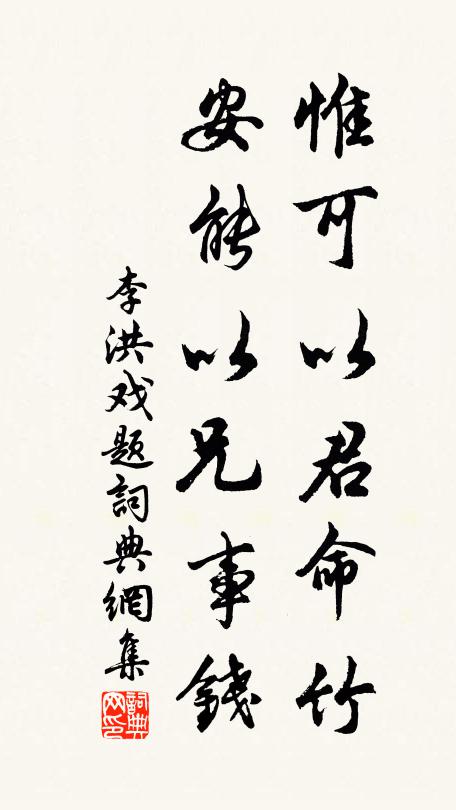 惟可以君命竹
安能以兄事錢
李洪戏题詞典網集
詞典网印